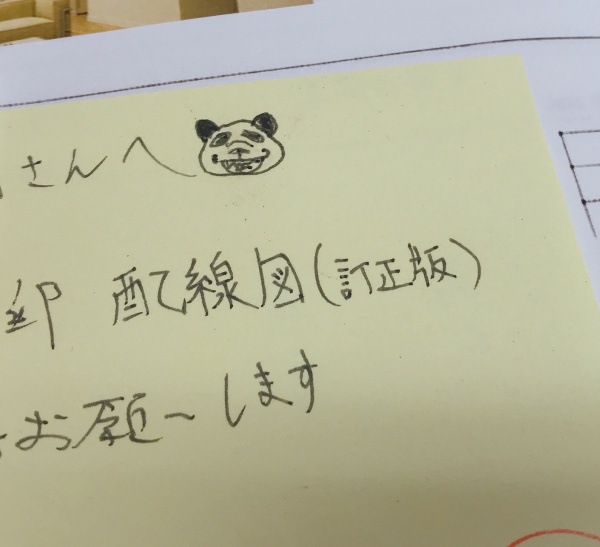 さんへ
邸 配線図(訂正版)
お願〜します